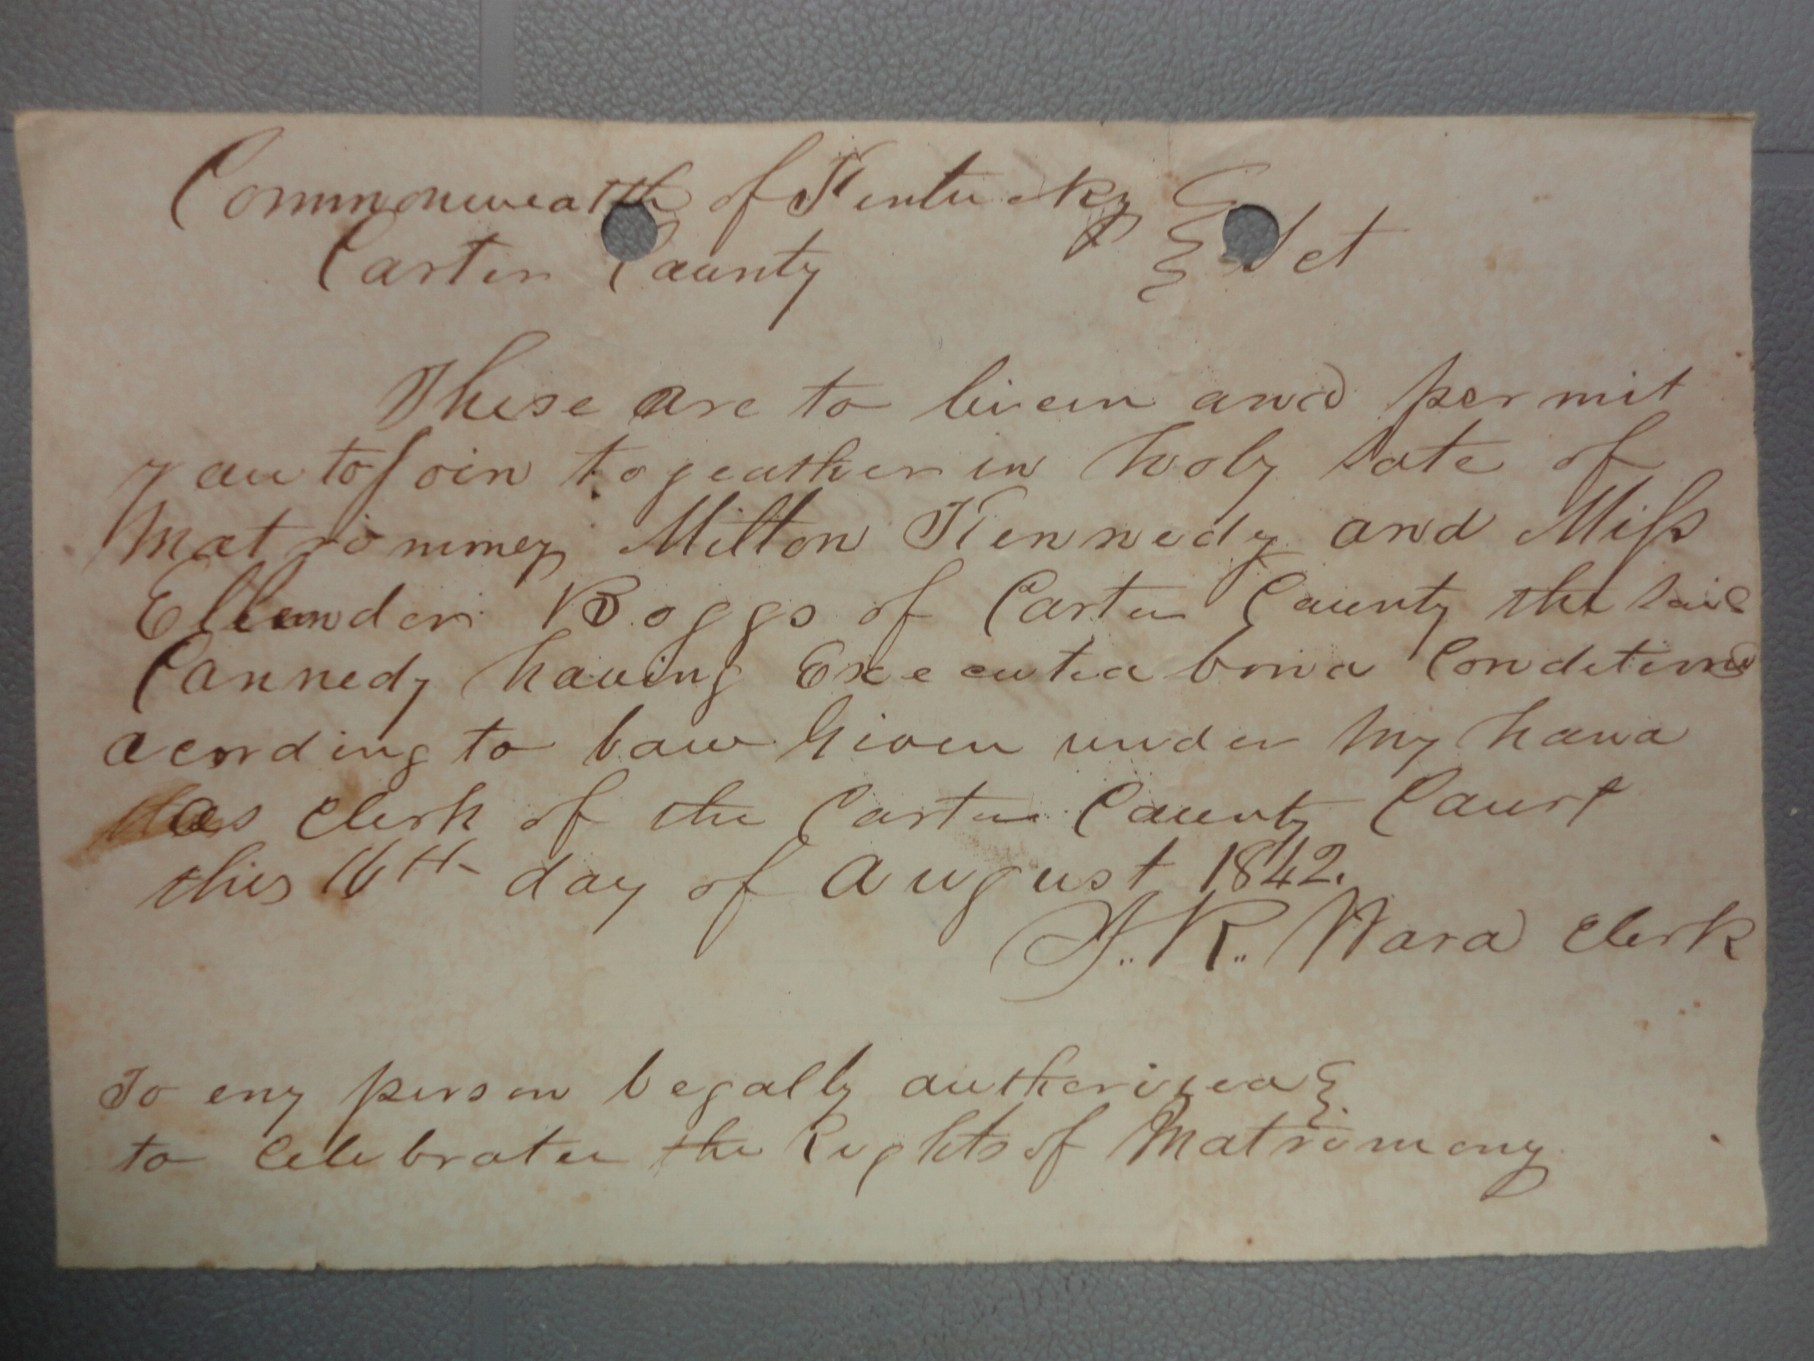 Commonweatth of Kentucky } Sct
Carter County
These are to licien and permit
you to Join togeather in holy sate of
Matrimmey Milton Kennedy and Miss
Ellender Boggs of Carter County the said
Cannedy having Executed bond Conditiond
acording to law Given under my hand
as Clerk of the Carter County Court
this 16th day of August 1842.
R. Ward Clerk
To eny person legally autherized }
to Celebrater the Rights of Matrimony